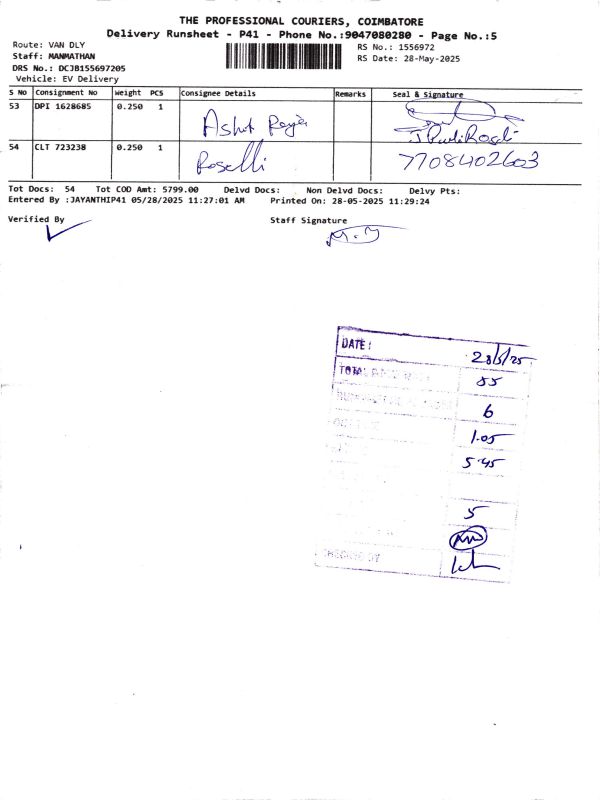 THE PROFESSIONAL COURIERS, COIMBATORE
Delivery Runsheet - P41 - Phone No.:9047080280 - Page No.:5
Route: VAN DLY
Staff: MANMATHAN
DRS No.: DCJB155697205
Vehicle: EV Delivery
RS No.: 1556972
RS Date: 28-May-2025
S No Consignment No Weight PCS Consignee Details Remarks Seal & Signature
53 DPI 1628685 0.250 1
54 CLT 723238 0.250 1 Roselli 7708402603
Tot Docs: 54 Tot COD Amt: 5799.00 Delvd Docs: Non Delvd Docs: Delvy Pts:
Entered By :JAYANTHIP41 05/28/2025 11:27:01 AM Printed On: 28-05-2025 11:29:24
Verified By Staff Signature
DATE: 28/5/25
TOTAL 55
6
1.05
5.45
5